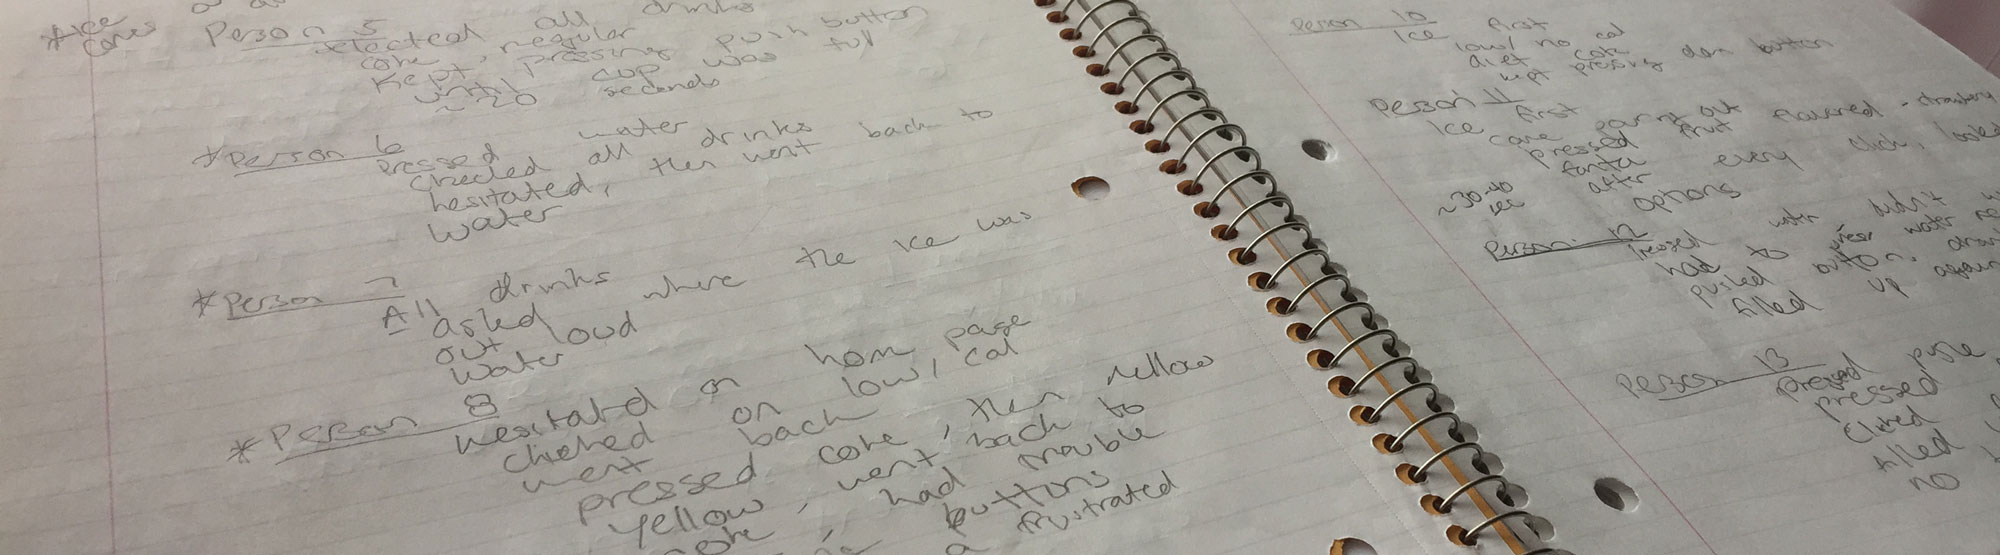 *Ice
comes
Person 5
selected all drinks
coke, regular
kept pressing push button
until cup was full
~20 seconds
*Person 6
pressed water
checked all drinks
hesitated, then went back to
water
*Person 7
All drinks
asked where the ice was
out loud
water
*Person 8
hesitated on hom page
clicked on low/cal
went back
pressed coke, then mellow
yellow, went back to
coke, had trouble
buttons
a frustrated
Person 10
Ice first
low/no cal
diet coke
kept pressing down button
Person 11
Ice first
came out
pressed fruit flavored - strawberry
fanta
after every click, looked
options
~30-40
sec
Person 12
pressed water, didn't
had to press water
pushed button,
filled up again
Person 13
pressed
pressed
filled
no